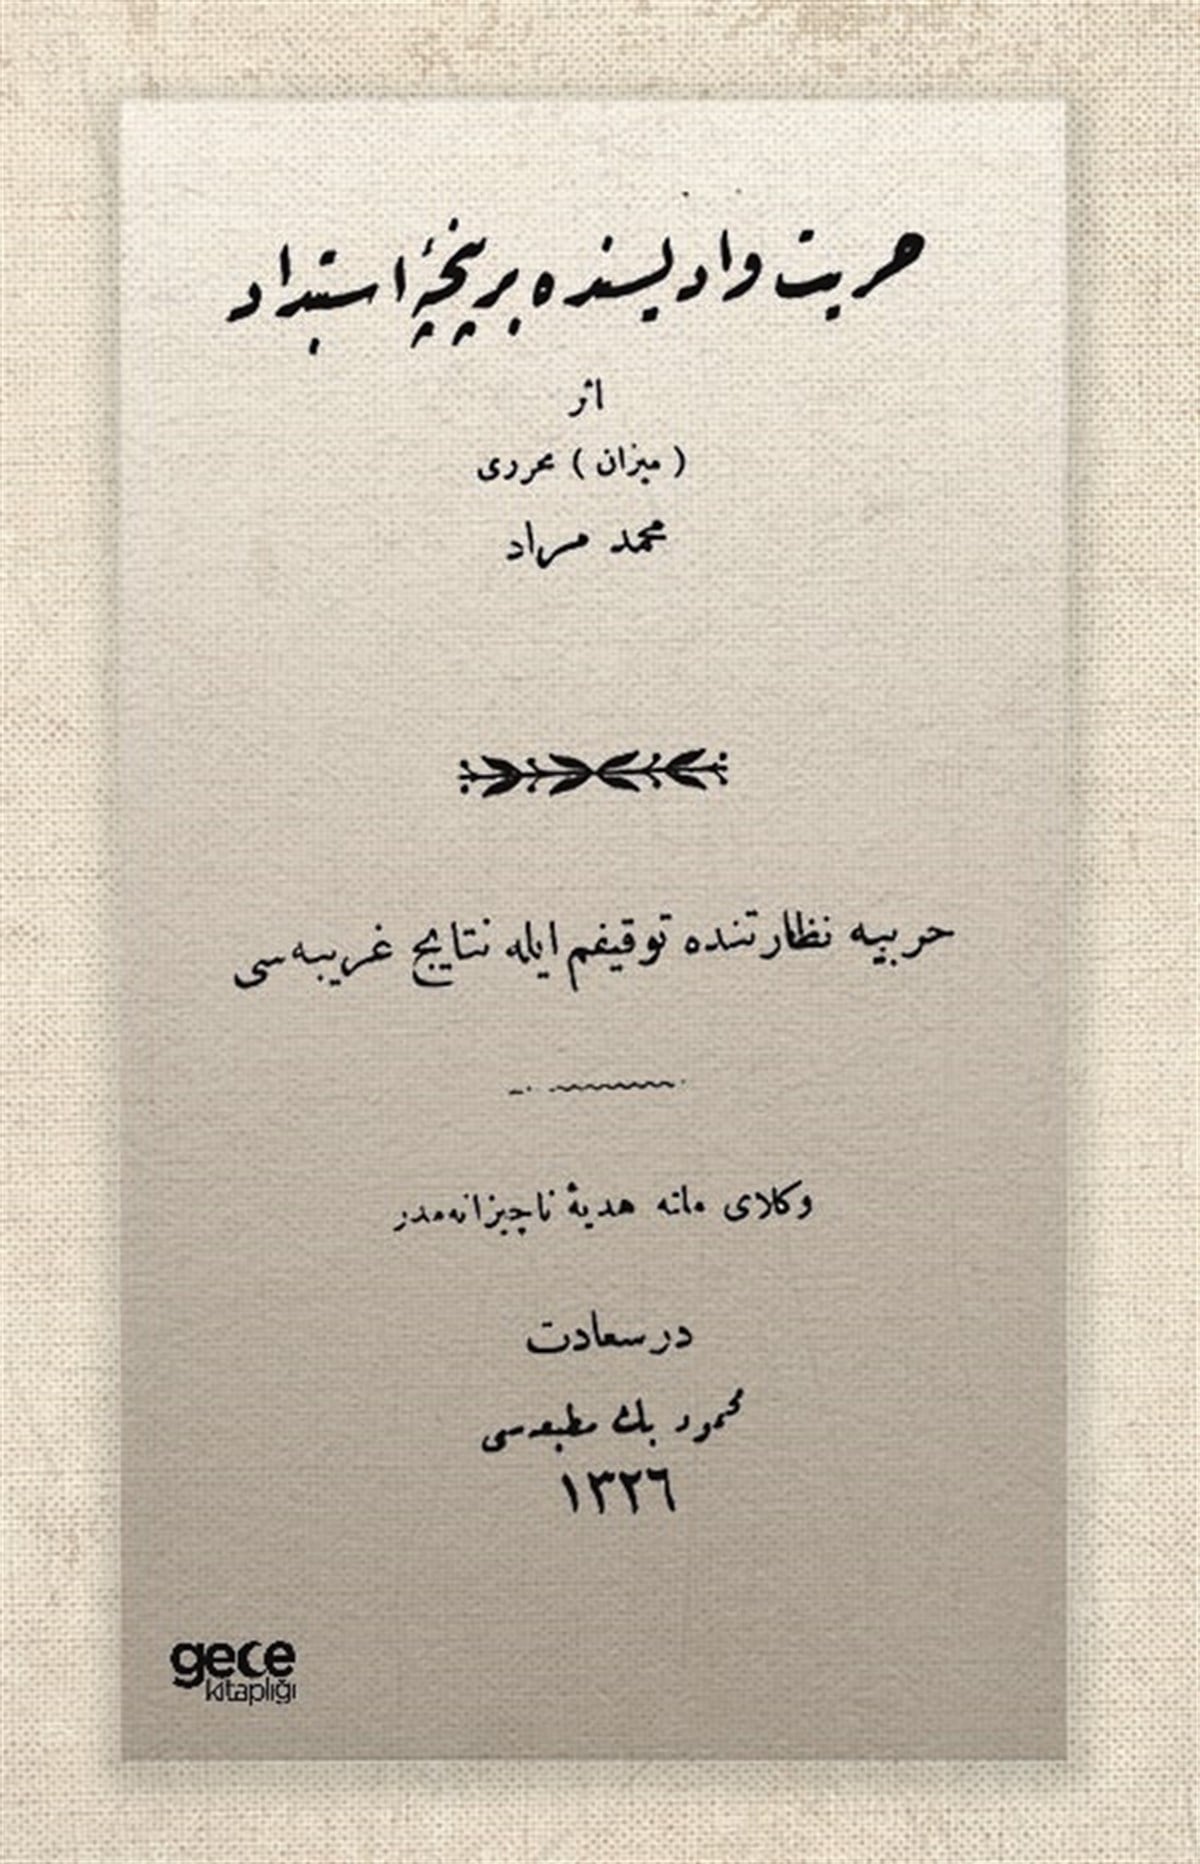 حریت وادیسنده بر پنجهٔ استبداد
اثر
( میزان ) محرری
محمد مراد
حربیه نظارتنده توقیفم ایله نتایج غریبه‌سی
وکلای ملته هدیهٔ ناچیزانه‌مدر
درسعادت
محمود بك مطبعه‌سی
١٣٢٦
gece
kitaplığı